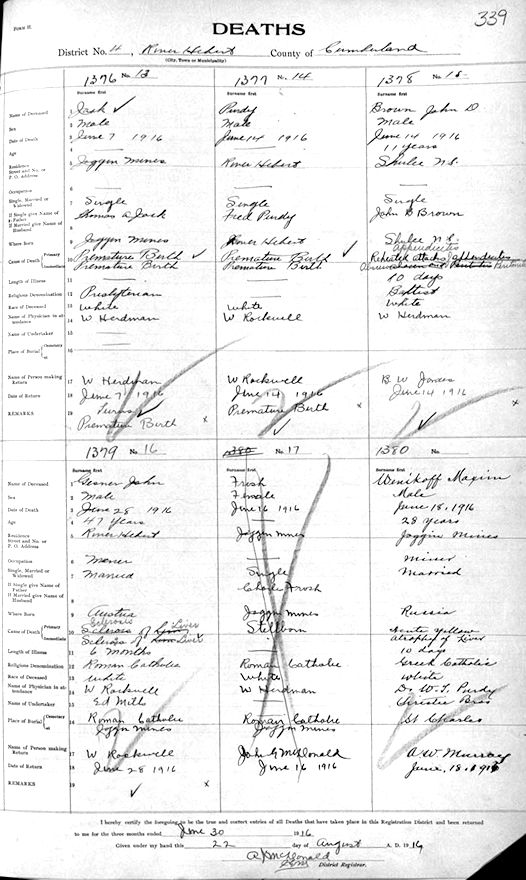 FORM H.
339
DEATHS
District No. 4, River Hebert County of Cumberland
(City, Town or Municipality)
1376 No. 13 1377 No. 14 1378 No. 15
Surname first Surname first Surname first
Name of Deceased 1 Jack ✓ Purdy Brown John D
Sex 2 Male Male Male
Date of Death 3 June 7 1916 June 14 1916 June 14 1916
Age 4 — — 11 years
Residence Street and No. or P. O. Address 5 Joggin Mines River Hebert Shulee N.S.
Occupation 6 — — —
Single, Married or Widowed 7 Single Single Single
If Single give Name of Father If Married give Name of Husband 8 Thomas A Jack Fred Purdy John D Brown
Where Born 9 Joggin Mines River Hebert Shulee N.S.
Appendicitis
Cause of Death Primary 10 Premature Birth ✓ Premature Birth ✓ Repeated attacks appendicitis
Immediate Premature Birth Premature Birth
Length of Illness 11 — — 10 days
Religious Denomination 12 Presbyterian — Baptist
Race of Deceased 13 White White White
Name of Physician in attendance 14 W Herdman W Rockwell W Herdman
Name of Undertaker 15
Place of Burial Cemetery at 16
Name of Person making Return 17 W Herdman W Rockwell B W Jones
Date of Return 18 June 7 1916 June 14 1916 June 14 1916
REMARKS 19 Twins ✓ Premature Birth x
Premature Birth x ✓ ✓
1379 No. 16 1380 No. 17 1380 No.
Surname first Surname first Surname first
Name of Deceased 1 Gesner John Frosh Winikoff Maxim
Sex 2 Male Female Male
Date of Death 3 June 28 1916 June 16 1916 June 18, 1916
Age 4 47 years — 28 years
Residence Street and No. or P. O. Address 5 River Hebert Joggin Mines Joggin Mines
Occupation 6 Miner — Miner
Single, Married or Widowed 7 Married Single Married
If Single give Name of Father If Married give Name of Husband 8 Charles Frosh
Where Born 9 Austria Joggin Mines Russia
Cause of Death Primary 10 Sclerosis of Liver Stillborn Acute yellow
Immediate Sclerosis of Liver atrophy of Liver
Length of Illness 11 6 months — 10 days
Religious Denomination 12 Roman Catholic Roman Catholic Greek Catholic
Race of Deceased 13 White White White
Name of Physician in attendance 14 W Rockwell W Herdman Dr. W. T. Purdy
Name of Undertaker 15 Ed Mills — Christie Bros
Place of Burial Cemetery at 16 Roman Catholic Roman Catholic St Charles
Joggin Mines Joggin Mines
Name of Person making Return 17 W Rockwell John G McDonald A. W. Murray
Date of Return 18 June 28 1916 June 16 1916 June, 18, 1916
REMARKS 19 ✓ x
I hereby certify the foregoing to be the true and correct entries of all Deaths that have taken place in this Registration District and been returned
to me for the three months ended June 30 1916
Given under my hand this 22 day of August A. D. 1916
McDonald
District Registrar.